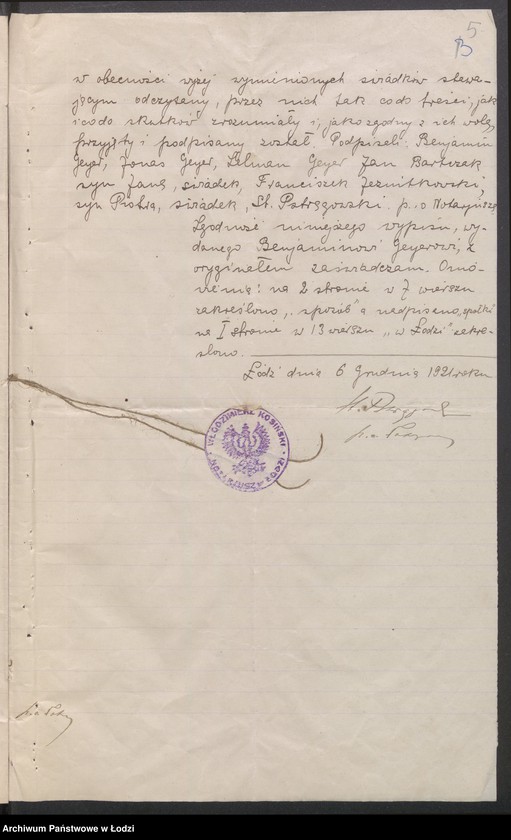 5
B
w obecności wyżej wymienionych świadków stawa-
jącym odczytany, przez nich tak co do treści, jak
i co do skutków zrozumiały i, jako zgodny z ich wolą,
przyjęty i podpisany został. Podpisali: Benjamin
Geyer, Jonas Geyer, Zelman Geyer Jan Bartczak
syn Jana, świadek, Franciszek
syn Piotra, świadek, St. p. o Notarjusza
Zgodność niniejszego wypisu, wy-
danego Benjaminowi Geyerowi, z
oryginałem zaświadczam. Omó-
wienia: na 2 stronie w 7 wierszu
zakreślono „sposób” a nadpisano „spółki
na I stronie w 13 wierszu „w Łodzi” zakre-
ślono.
Łódź dnia 6 Grudnia 1921 roku
WŁODZIMIERZ KOSIŃSKI
NOTARJUSZ w ŁODZI
Archiwum Państwowe w Łodzi